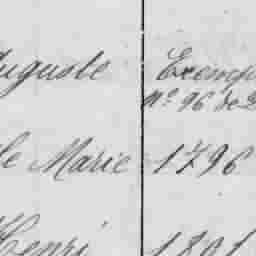 Auguste Exemp
Nº 96 de 2
le Marie 1796
Henri 1801